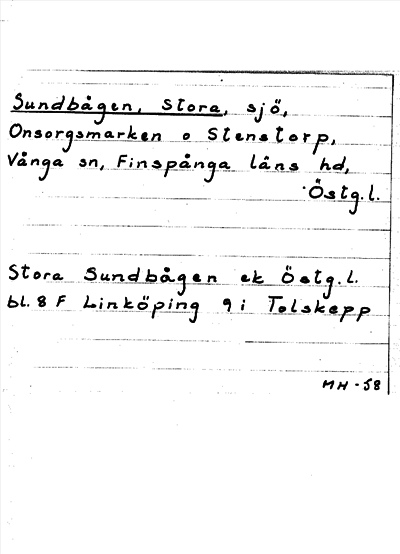 Sundbågen, Stora, sjö,
Onsorgsmarken o Stenstorp,
Vånga sn, Finspånga läns hd,
Östg.l.
Stora Sundbågen ek Östg.l.
bl. 8 F Linköping 9 i Tolskepp
MH-58